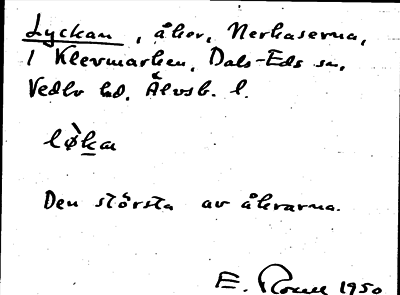 Lyckan, åker, Nerkaserna,
i Klevmarken, Dals-Eds sn,
Vedbo hd, Älvsb. l.
lø̀ka
Den största av åkrarna.
E. 1950